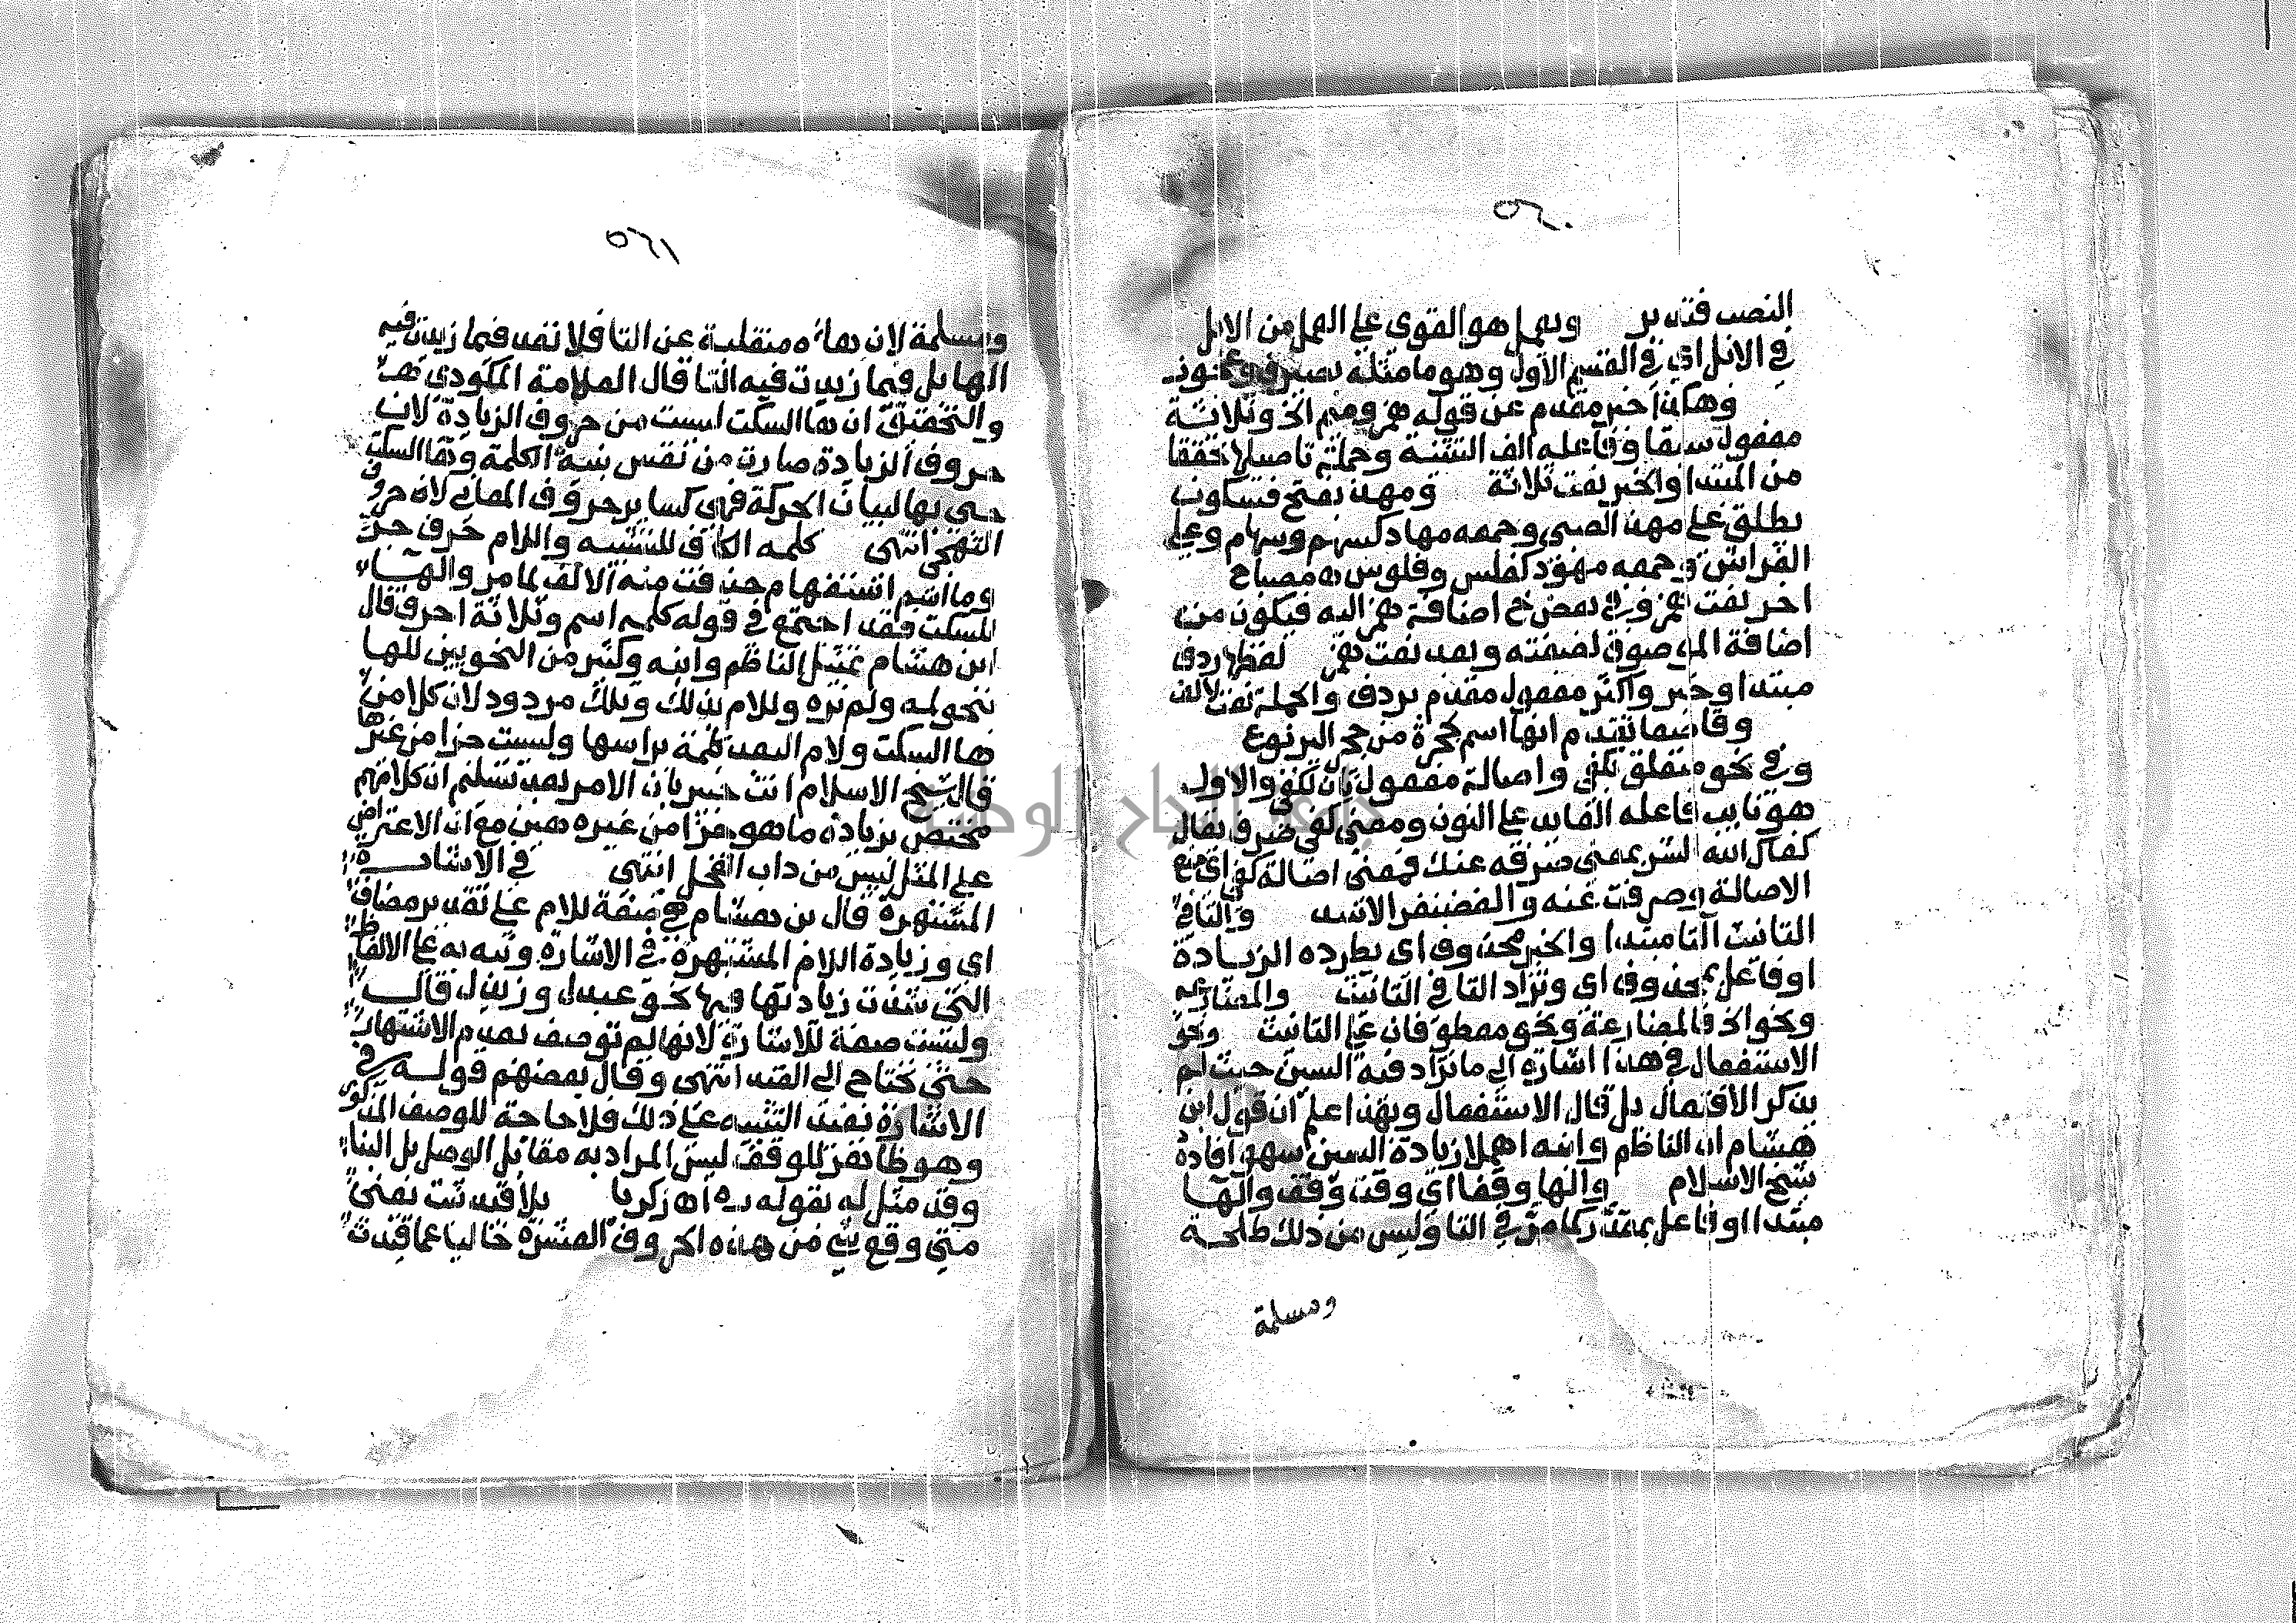 ٥٦٠
النصب فتدبر ويعمل هو القوي على العمل من الابل
في الابل اي في القسم الاول وهو ما مثله
وهكذا خبر مقدم عن قوله همز وميم الخ وثلاثة
مفعول سبقا وفاعله الف التثنية وجملة تاصيلها تحققا
من المبتدا والخبر نعت ثلاثة ومهد بفتح فسكون
يطلق على مهد الصبي وجمعه مهاد كسهم وسهام وعلى
الفراش وجمعه مهود كفلس وفلوس اه مصباح
اخر نعت همز وفي بعض نخ اضافة همز اليه فيكون من
اضافة الموصوف لصفته وبعد نعت همز لفظها ردف
مبتدا وخبر واكثر مفعول مقدم بردف والجملة نعت لالف
وقاصعا تقدم انها اسم لجحرة من جحر اليربوع
وفي نحو متعلق بكفي واصالة مفعول ثان لكفي والاول
هو نايب فاعله العايد على النون ومعنى كفي صرف يقال
كفاك الله الشر بمعنى صرفه عنك فمعنى اصالة كفي اي منع
الاصالة وصرفت عنه والغضنفر الاسد والتا في
التانيث التا مبتدا والخبر محذوف اي بطرده الزيادة
او فاعل بمحذوف اي وتزاد التا في التانيث والمضارعه
ونحو اذ فالمضارعة ونحو معطوفان على التانيث ونحو
الاستفعال في هذا اشارة الى ما تزاد فيه السين حيث لم
يذكر الافتعال بل قال الاستفعال وبهذا اعلم ان قول ابن
هشام ان الناظم وابنه اهملا زيادة السين سهو افادة
شيخ الاسلام والها وقفا اي وقت وقف والها
مبتدا او فاعل بمقدر كما مر في التا وليس من ذلك طلحة
ومسلمة
٥٦١
ومسلمة لان هائه منقلبة عن التا فلا تعد فيما زيدت فيه
الها بل فيما زيدت فيه التا قال العلامة المكودي هنا
والتحقيق ان ها السكت ليست من حروف الزيادة لان
حروف الزيادة صارت من نفس بنية الكلمة وها السكت
جيء بها لبيان الحركة فهي كساير حروف المعاني لا من حروف
التهجى انتهى كلمه الكاف للتشبيه واللام حرف جر
وما اسم استفهام حذفت منه الالف لما مر والهاء
للسكت فقد اجتمع في قوله كلمه اسم وثلاثة احرف قال
ابن هشام تمثيل الناظم وابنه وكثير من النحويين للها
بنحو لمه ولم تره وللام بذلك وتلك مردود لان كلا من
ها السكت ولام البعد كلمة براسها وليست جزا من غيرها
قال شيخ الاسلام انت خبير بان الامر بعد تسليم ان كلا منهم
مختص بزيادة ما هو جزا من غيره هين مع ان الاعتراض
على المثل ليس من داب الفحل انتهى في الاشارة
المشتهرة قال بن هشام هي صفة للام على تقدير مضاف
اي وزيادة اللام المشتهرة في الاشارة ونبه به على الالفاظ
التي شذت زيادتها فيها نحو عبدل وزيدل قال
وليست صفة للاشارة لانها لم توصف بعدم الاشتهار
حتى تحتاج الى القيد انتهى وقال بعضهم قوله في
الاشارة يفيد التنبيه على ذلك فلا حاجة للوصف المذكور
وهو ظاهر للوقف ليس المراد به مقابل الوصل بل البنا
وقد مثل له بقوله به اه زكريا بلا قيد ثبت يعني
متى وقع شيء من هذه الحروف العشرة خاليا عما قيدت